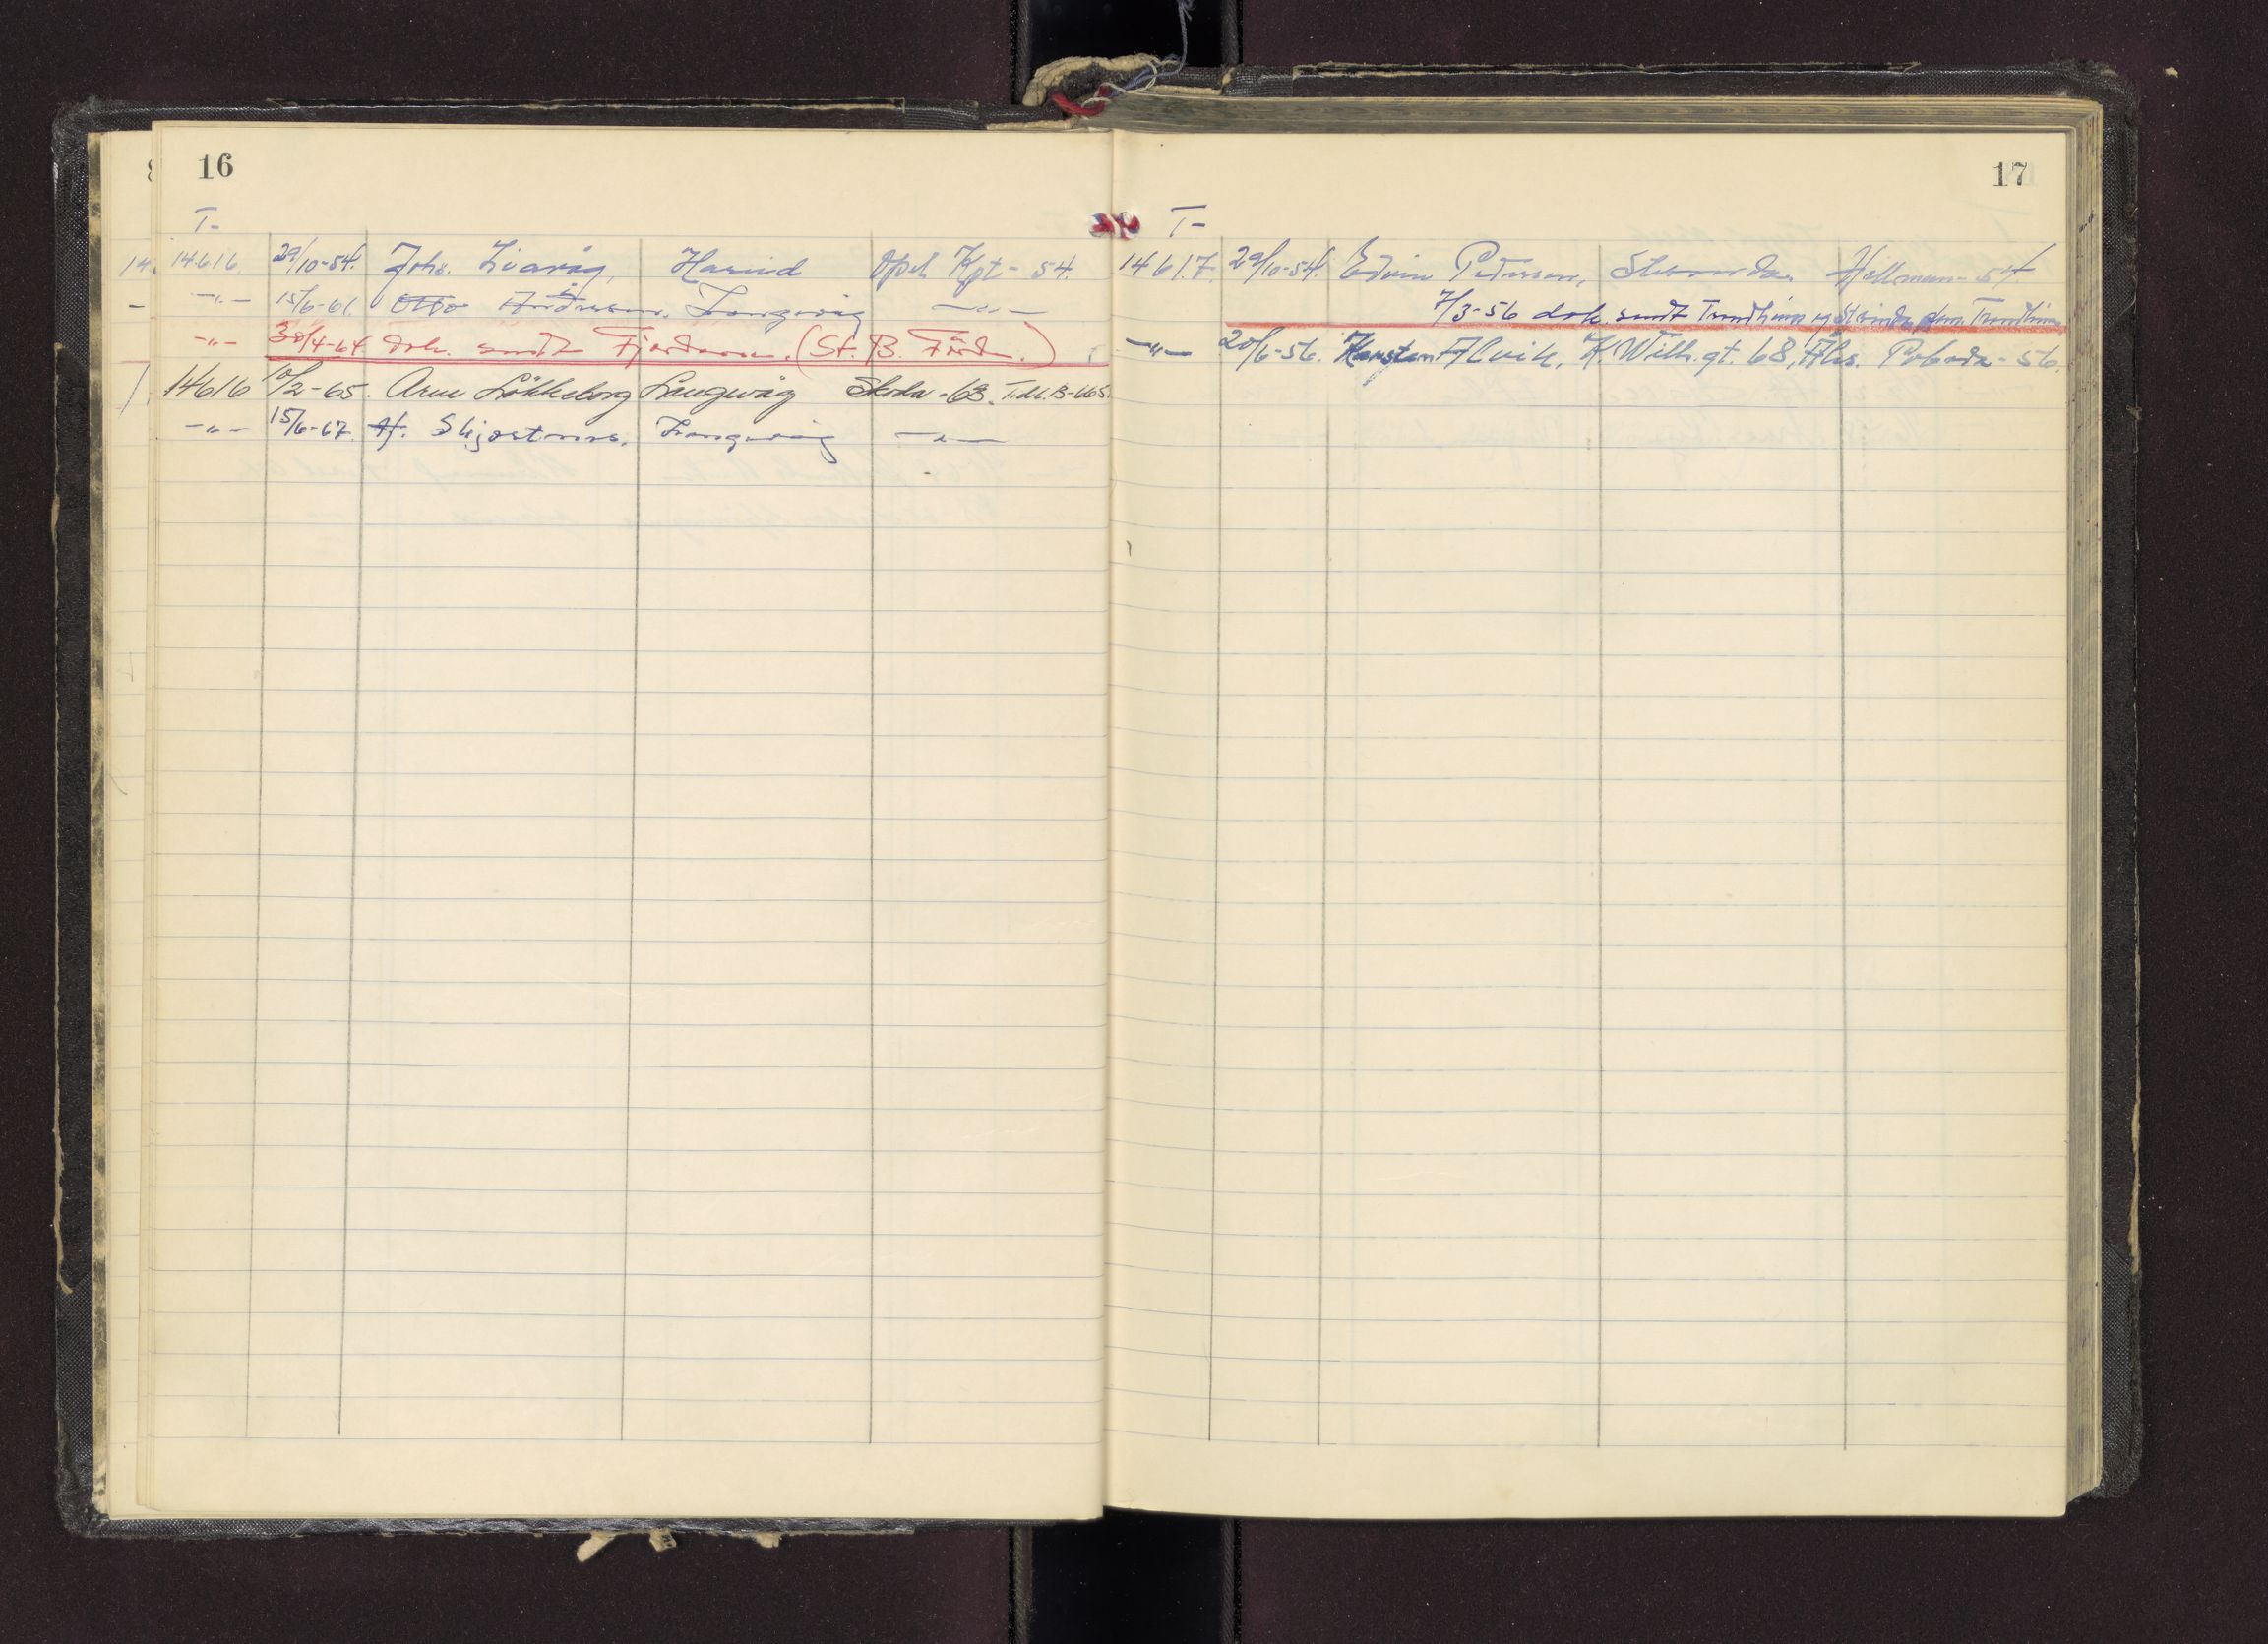 16
T-
14616. 29/10-54. Johs. Liavåg, Hareid Opel Kpt- 54.
-"- 15/6-61. Otto Andressen, Langevåg -"-
-"- 30/4-64 dok. sendt Fjordane. (St. B. Förde.)
14616 10/2-65. Arne Løkkeborg Langevåg Skoda -63. Tidl. B-665
-"- 15/6-67. H. Skjøstnes. Langevåg -"-
17
T-
14617. 29/10-54. Edvin Pettersen, Skranda. Hillman- 54.
7/3-56 dok. sendt Trondheim og Strinda, Trondheim
-"- 20/6-56. Karsten Alvik, K. Wilh. gt. 68, Åls. Pobeda - 56.